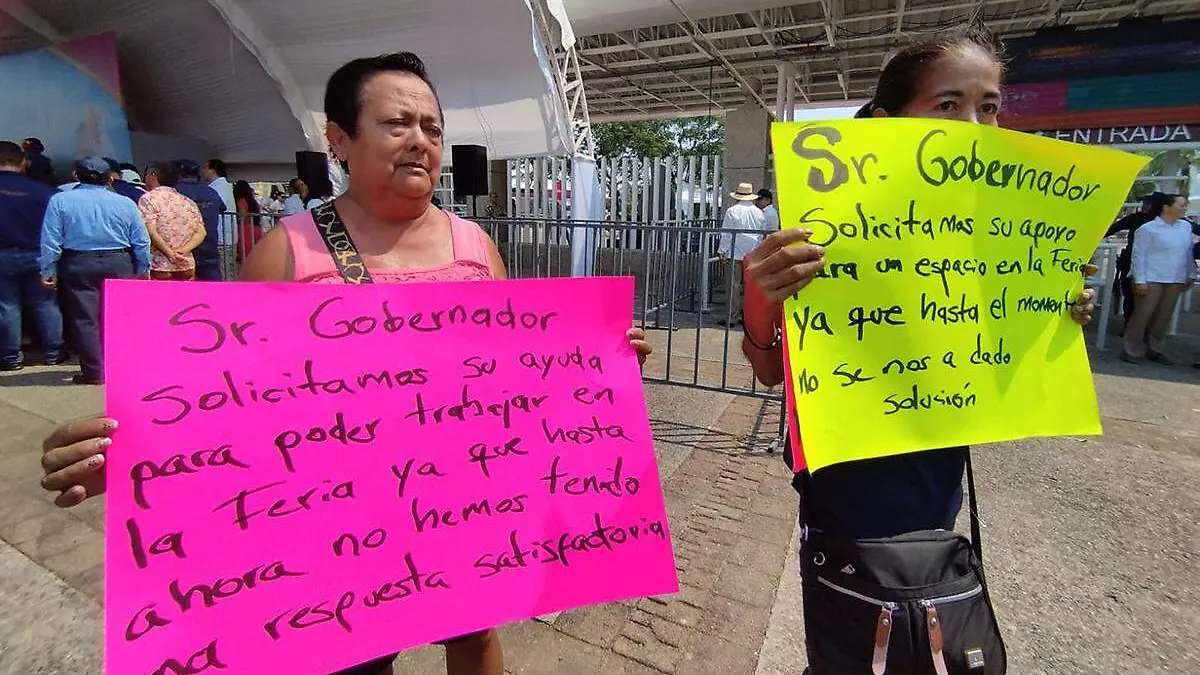 Sr. Gobernador
Solicitamos su ayuda
para poder trabajar en
la Feria ya que hasta
ahora no hemos tenido
una respuesta satisfactoria
Sr. Gobernador
Solicitamos su apoyo
para un espacio en la Feria
ya que hasta el momento
no se nos a dado
solusión
ENTRADA